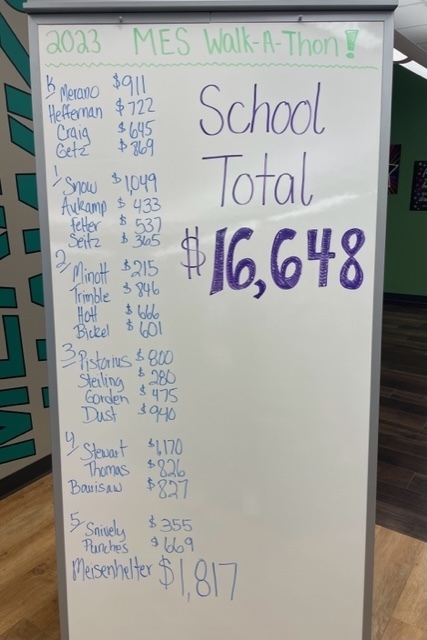 2023 MES Walk-A-Thon!
K/ Merano $911
Heffernan $722
Craig $645
Getz $869
1/ Snow $1,049
Aukamp $433
Fetter $537
Seitz $365
2/ Minott $215
Trimble $846
Hott $666
Bickel $601
3/ Pistorius $800
Sterling $280
Gorden $475
Dust $940
4/ Stewart $1,170
Thomas $826
$827
5/ Snively $355
Punches $669
Meisenhelter $1,817
School
Total
$16,648